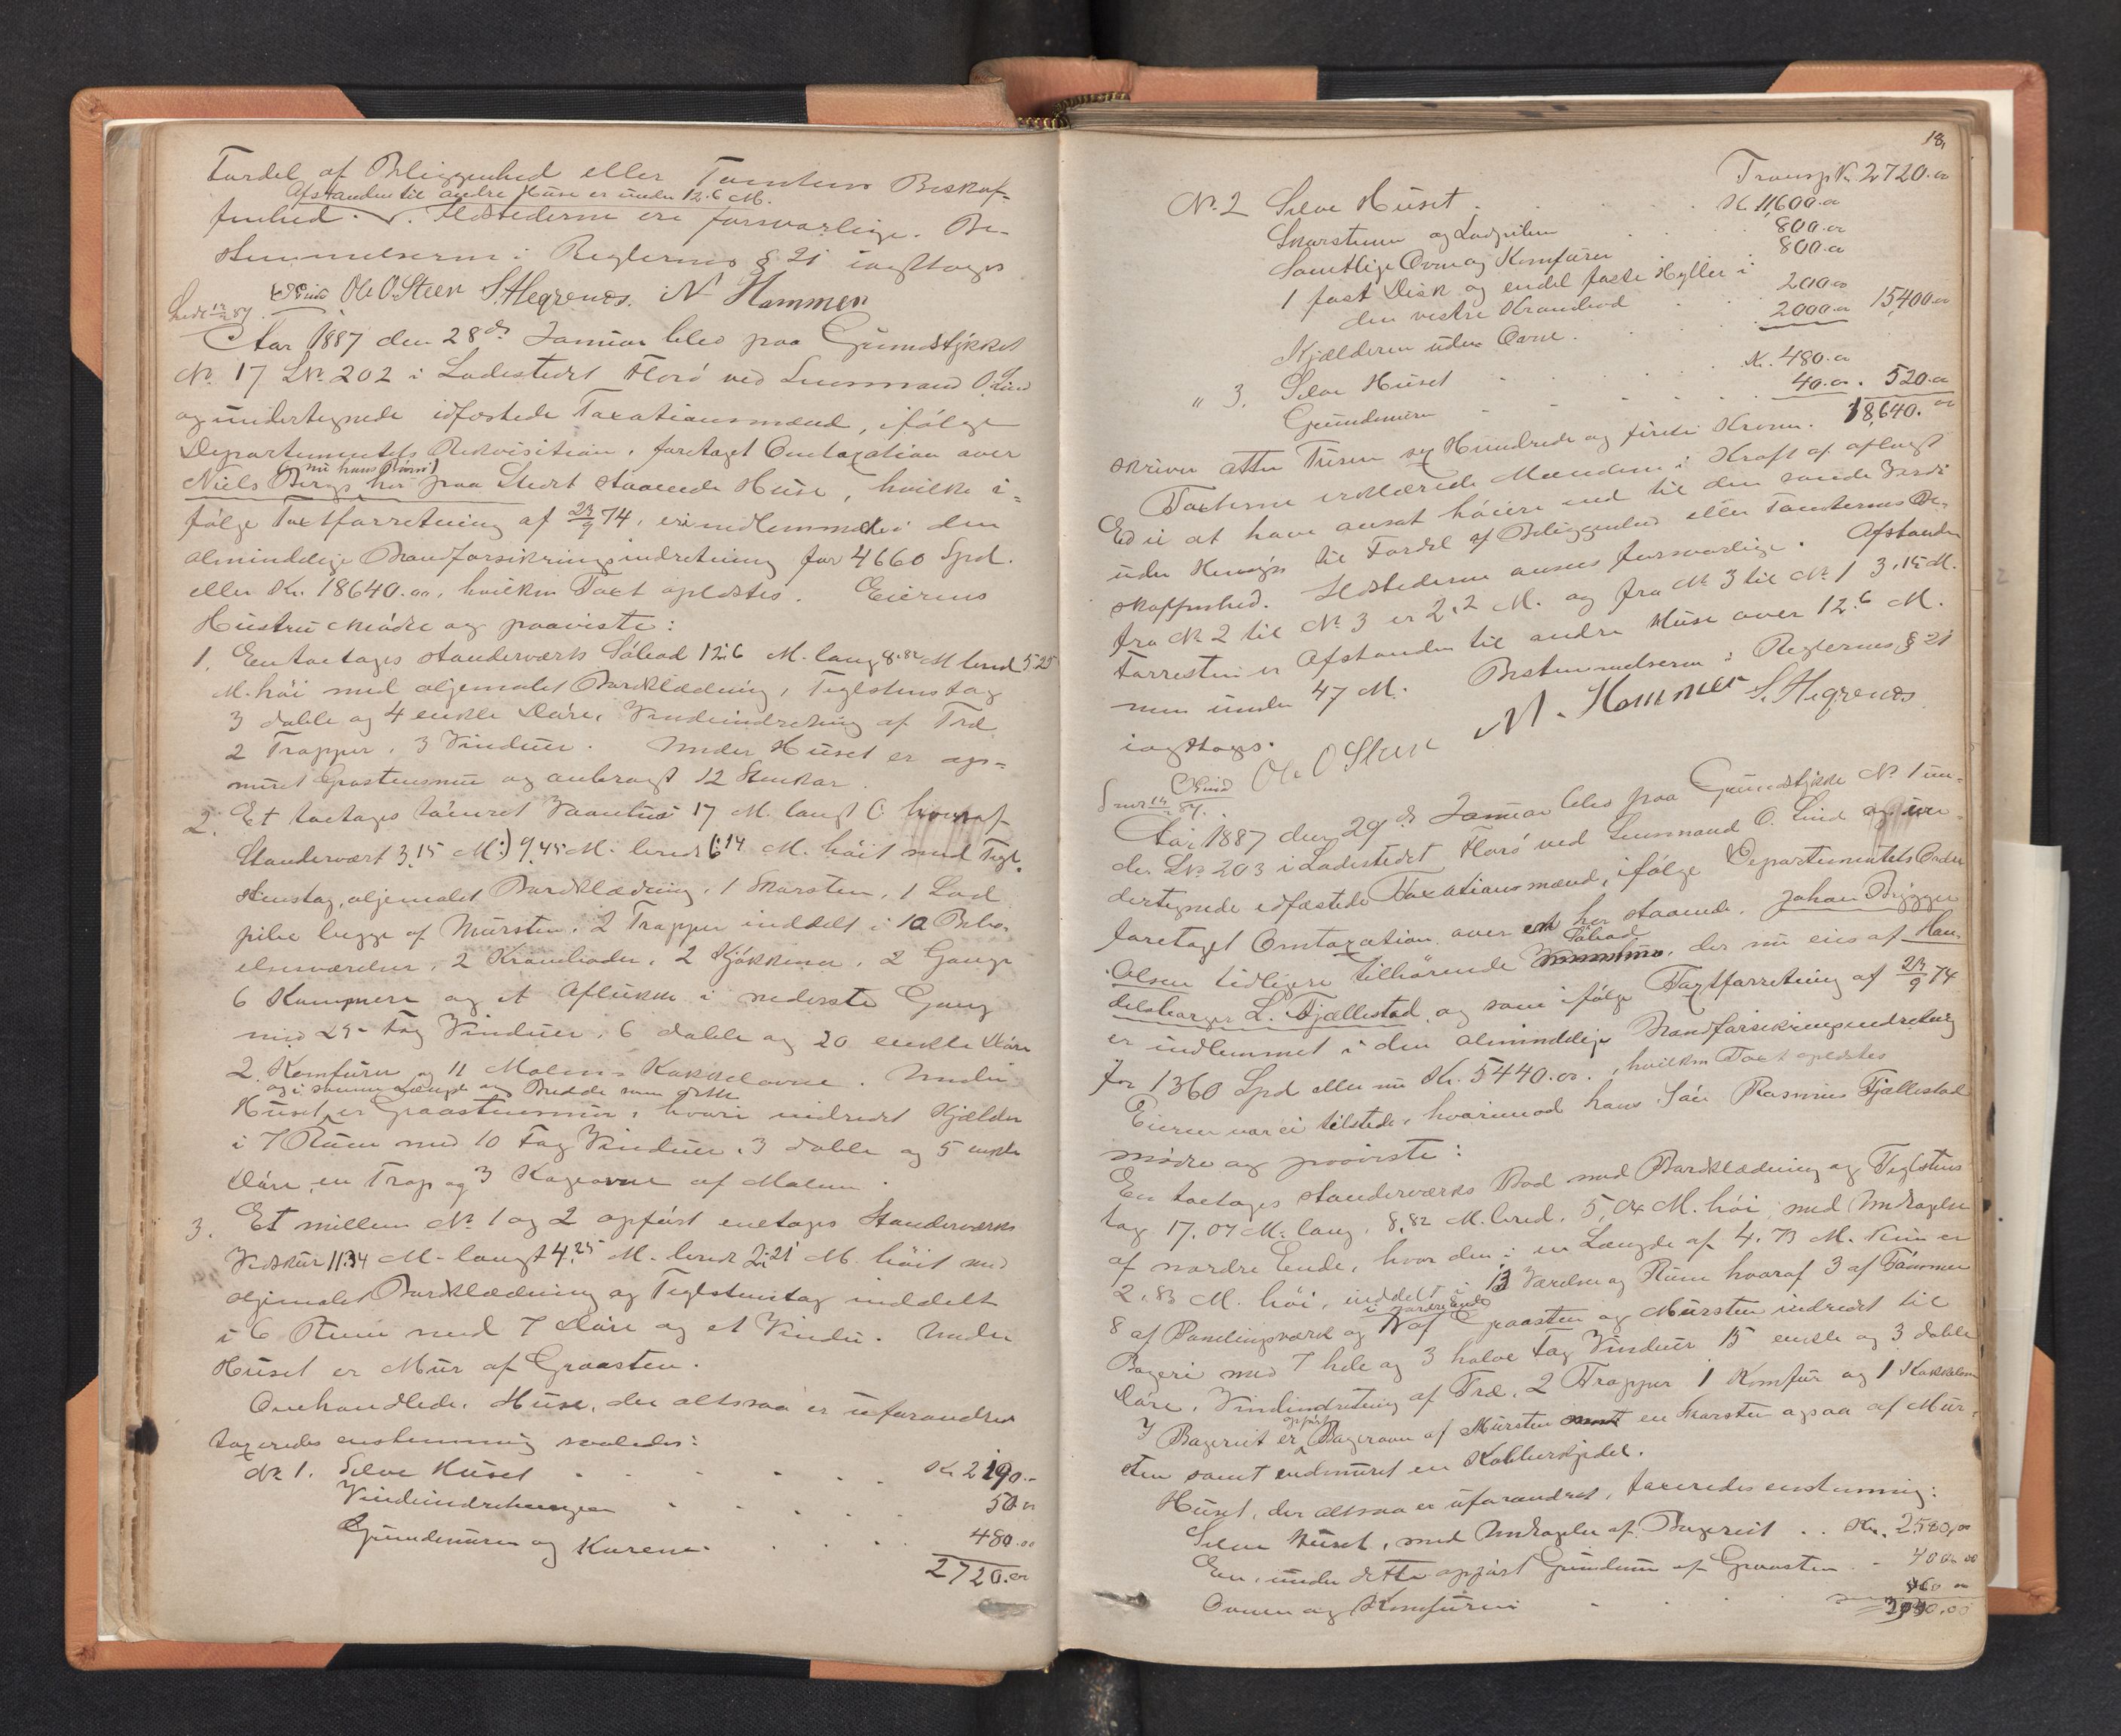 Fordel af Beliggenhed eller Tomtens Beskaf-
Afstanden til andre Huse er under 12.6 M.
fenhed. Ildstederne ere forsvarlige. Be-
stemmelserne i Reglernes § 21 iagttages
O Lind Ole O. Steen S. Hegrenæs. N Hammer
Aar 1887 den 28de Januar blev paa Grundstykket
No 17 LNo 202 i Ladestedet Florö ved Lensmand O. Lind
og undertegnede edfæstede Taxationsmænd, ifølge
Departementets Rekvisition, foretaget Omtaxation over
Niels Bergs her paa Stedet staaende Huse, hvilke i-
følge Taxtforretning af 23/9 74, er indlemmede i den
almindelige Brandforsikringsindretning for 4660 Spd.
eller Kr. 18640.00, hvilken Taxt oplæstes. Eierens
Hustru mødte og paaviste:
1. En toetages standerværks Søbod 12.6 M. lang 8.82 M bred 5.25
M. høi med oljemalet Bordklædning, Teglstenstag
3 doble og 4 enkle Døre, Vindeindretning af Træ
2 Trapper, 3 Vinduer. Under Huset er op-
muret Graastensmur og anbragt 12 Stenkar.
2. Et toetages tømret Vaanhus 17 M. langt (: hvoraf
Standerværk 3.15 M:) 9.45 M. bredt 6.14 M. høit med Tegl-
stenstag, oljemalet Bordklædning, 1 Skorsten, 1 Lod
pibe begge af Mursten, 2 Trapper inddelt i 10 Bebo-
elsesværelser, 2 Kramboder, 2 Kjøkkener, 2 Gange
6 Kammere og et Aflukke i nederste Gang
med 29 Fag Vinduer, 6 doble og 20 enkle Døre
2 Komfurer og 11 Malms Kakkelovne. Under
og i samme Længde og Bredde som dette
Huset er Graastensmur, hvori indredet Kjælder
i 7 Rum med 10 Fag Vinduer, 3 doble og 5 enkle
Døre, en Trap og 3 Kogeovne af Malm.
3. Et mellem No 1 og 2 opført enetages Standerværks
Vedskur 11.34 M. langt 4.25 M. bredt 2.21 M. høit med
oljemalet Bordklædning og Teglstenstag inddelt
i 6 Rum med 7 Døre og et Vindu. Under
Huset er Mur af Graasten.
Omhandlede Huse, der altsaa er uforandret
taxeredes enstemmig saaledes:
No 1. Selve Huset Kr 2190.-
Vindeindretningen 50.00
Grundmuren og Karene 480.00
2720.00
18,
Transp. Kr. 2720.00
No. 2 Selve Huset Kr. 11600.00
Skorstenen og Lodpiben 800.00
Samtlige Ovne og Komfurer 800.00
1 fast Disk og endel faste Hyller i
den vestre Krambod 200.00
Kjælderen uden Ovne. 2000.00 15400.00
" 3. Selve Huset Kr. 480.00
Grundmuren 40.00. 520.00
18,640.00
skriver atten Tusen sex Hundrede og firti Kroner.
Taxterne erklærede Mændene i Kraft af aflagt
Ed ei at have ansat høiere end til den sande Værdi
uden Hensyn til Fordel af Beliggenhed eller Tomternes Be-
skaffenhed. Ildstederne ansees forsvarlige. Afstanden
fra No 2 til No 3 er 2.2 M. og fra No 3 til No 1 3.15 M.
Forresten er Afstanden til andre Huse over 12.6 M.
men under 47 M. Bestemmelserne i Reglernes § 21
iagttages.
O Lind Ole O Steen N. Hammer S. Hegrenæs
Aar 1887 den 29de Januar blev paa Grundstykke No 1 un-
der LNo 203 i Ladestedet Florö ved Lensmand O. Lind og un-
dertegnede edfæstede Taxationsmænd, ifølge Departementets Order
foretaget Omtaxation over en her staaende, Johan Brügger
Søbod
Olsen tidligere tilhørende, der nu eies af Han-
delsborger L. Fjællestad og som ifølge Taxtforretning af 23/9 74
er indlemmet i den almindelige Brandforsikringsindretning
for 1360 Spd eller nu Kr. 5440.00, hvilken Taxt oplæstes
Eieren var ei tilstede, hvorimod hans Søn Rasmus Fjællestad
mødte og paaviste:
En toetages standerværks Bod med Bordklædning og Teglstens
tag 17.07 M. lang, 8.82 M. bred, 5.04 M. høi, med Undtagelse
af nordre Ende, hvor den i en Længde af 4.73 M. kun er
2.83 M. høi, inddelt i 13 Værelser og Rum hvoraf 3 af Tømmer
i nordre Ende
8 af Bindingsværk og af Graasten og Mursten indredet til
Bageri med 7 hele og 3 halve Fag Vinduer 15 enkle og 3 doble
Døre, Vindeindretning af Træ, 2 Trapper 1 Komfur og 1 Kakkelovn
opført
I Bageriet er Bagerovn af Mursten en Skorsten ogsaa af Mur-
sten samt indmuret en Kobberkjedel.
Huset, der altsaa er uforandret, taxeredes enstemmig:
Selve Huset, med Undtagelse af Bageriet .. Kr. 2580,00
En, under dette opført Grundmur af Graasten 400.00
Ovnen og Komfuren